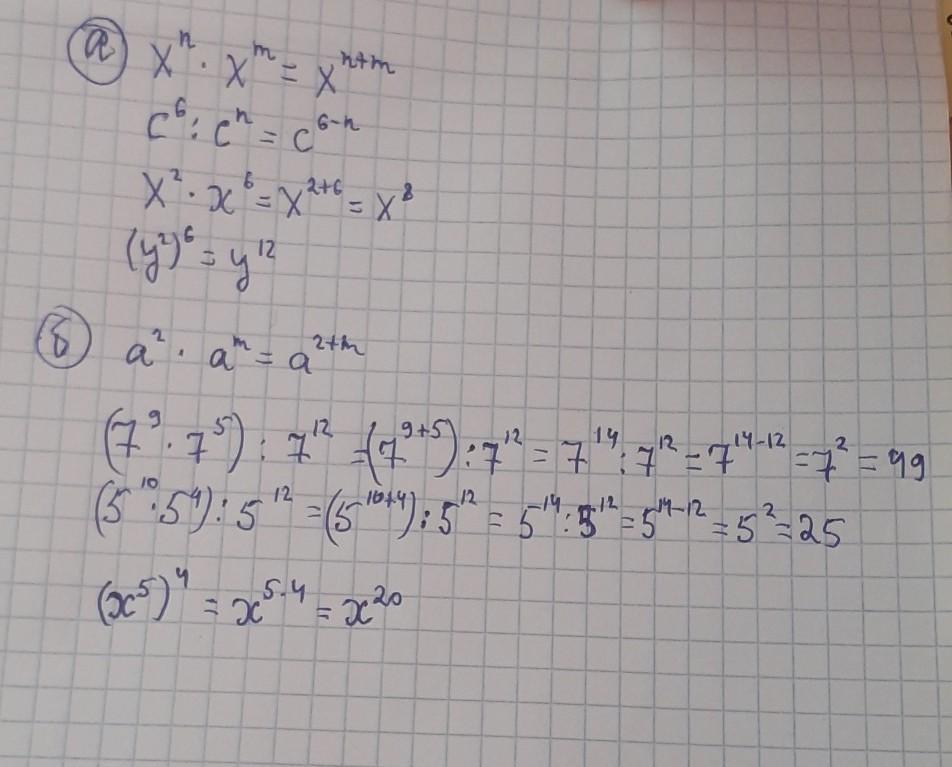 а) xⁿ · xᵐ = xⁿ⁺ᵐ
c⁶ : cⁿ = c⁶⁻ⁿ
x² · x⁶ = x²⁺⁶ = x⁸
(y²)⁶ = y¹²
б) a² · aᵐ = a²⁺ᵐ
(7⁹ · 7⁵) : 7¹² = (7⁹⁺⁵) : 7¹² = 7¹⁴ : 7¹² = 7¹⁴⁻¹² = 7² = 49
(5¹⁰ · 5⁴) : 5¹² = (5¹⁰⁺⁴) : 5¹² = 5¹⁴ : 5¹² = 5¹⁴⁻¹² = 5² = 25
(x⁵)⁴ = x⁵·⁴ = x²⁰